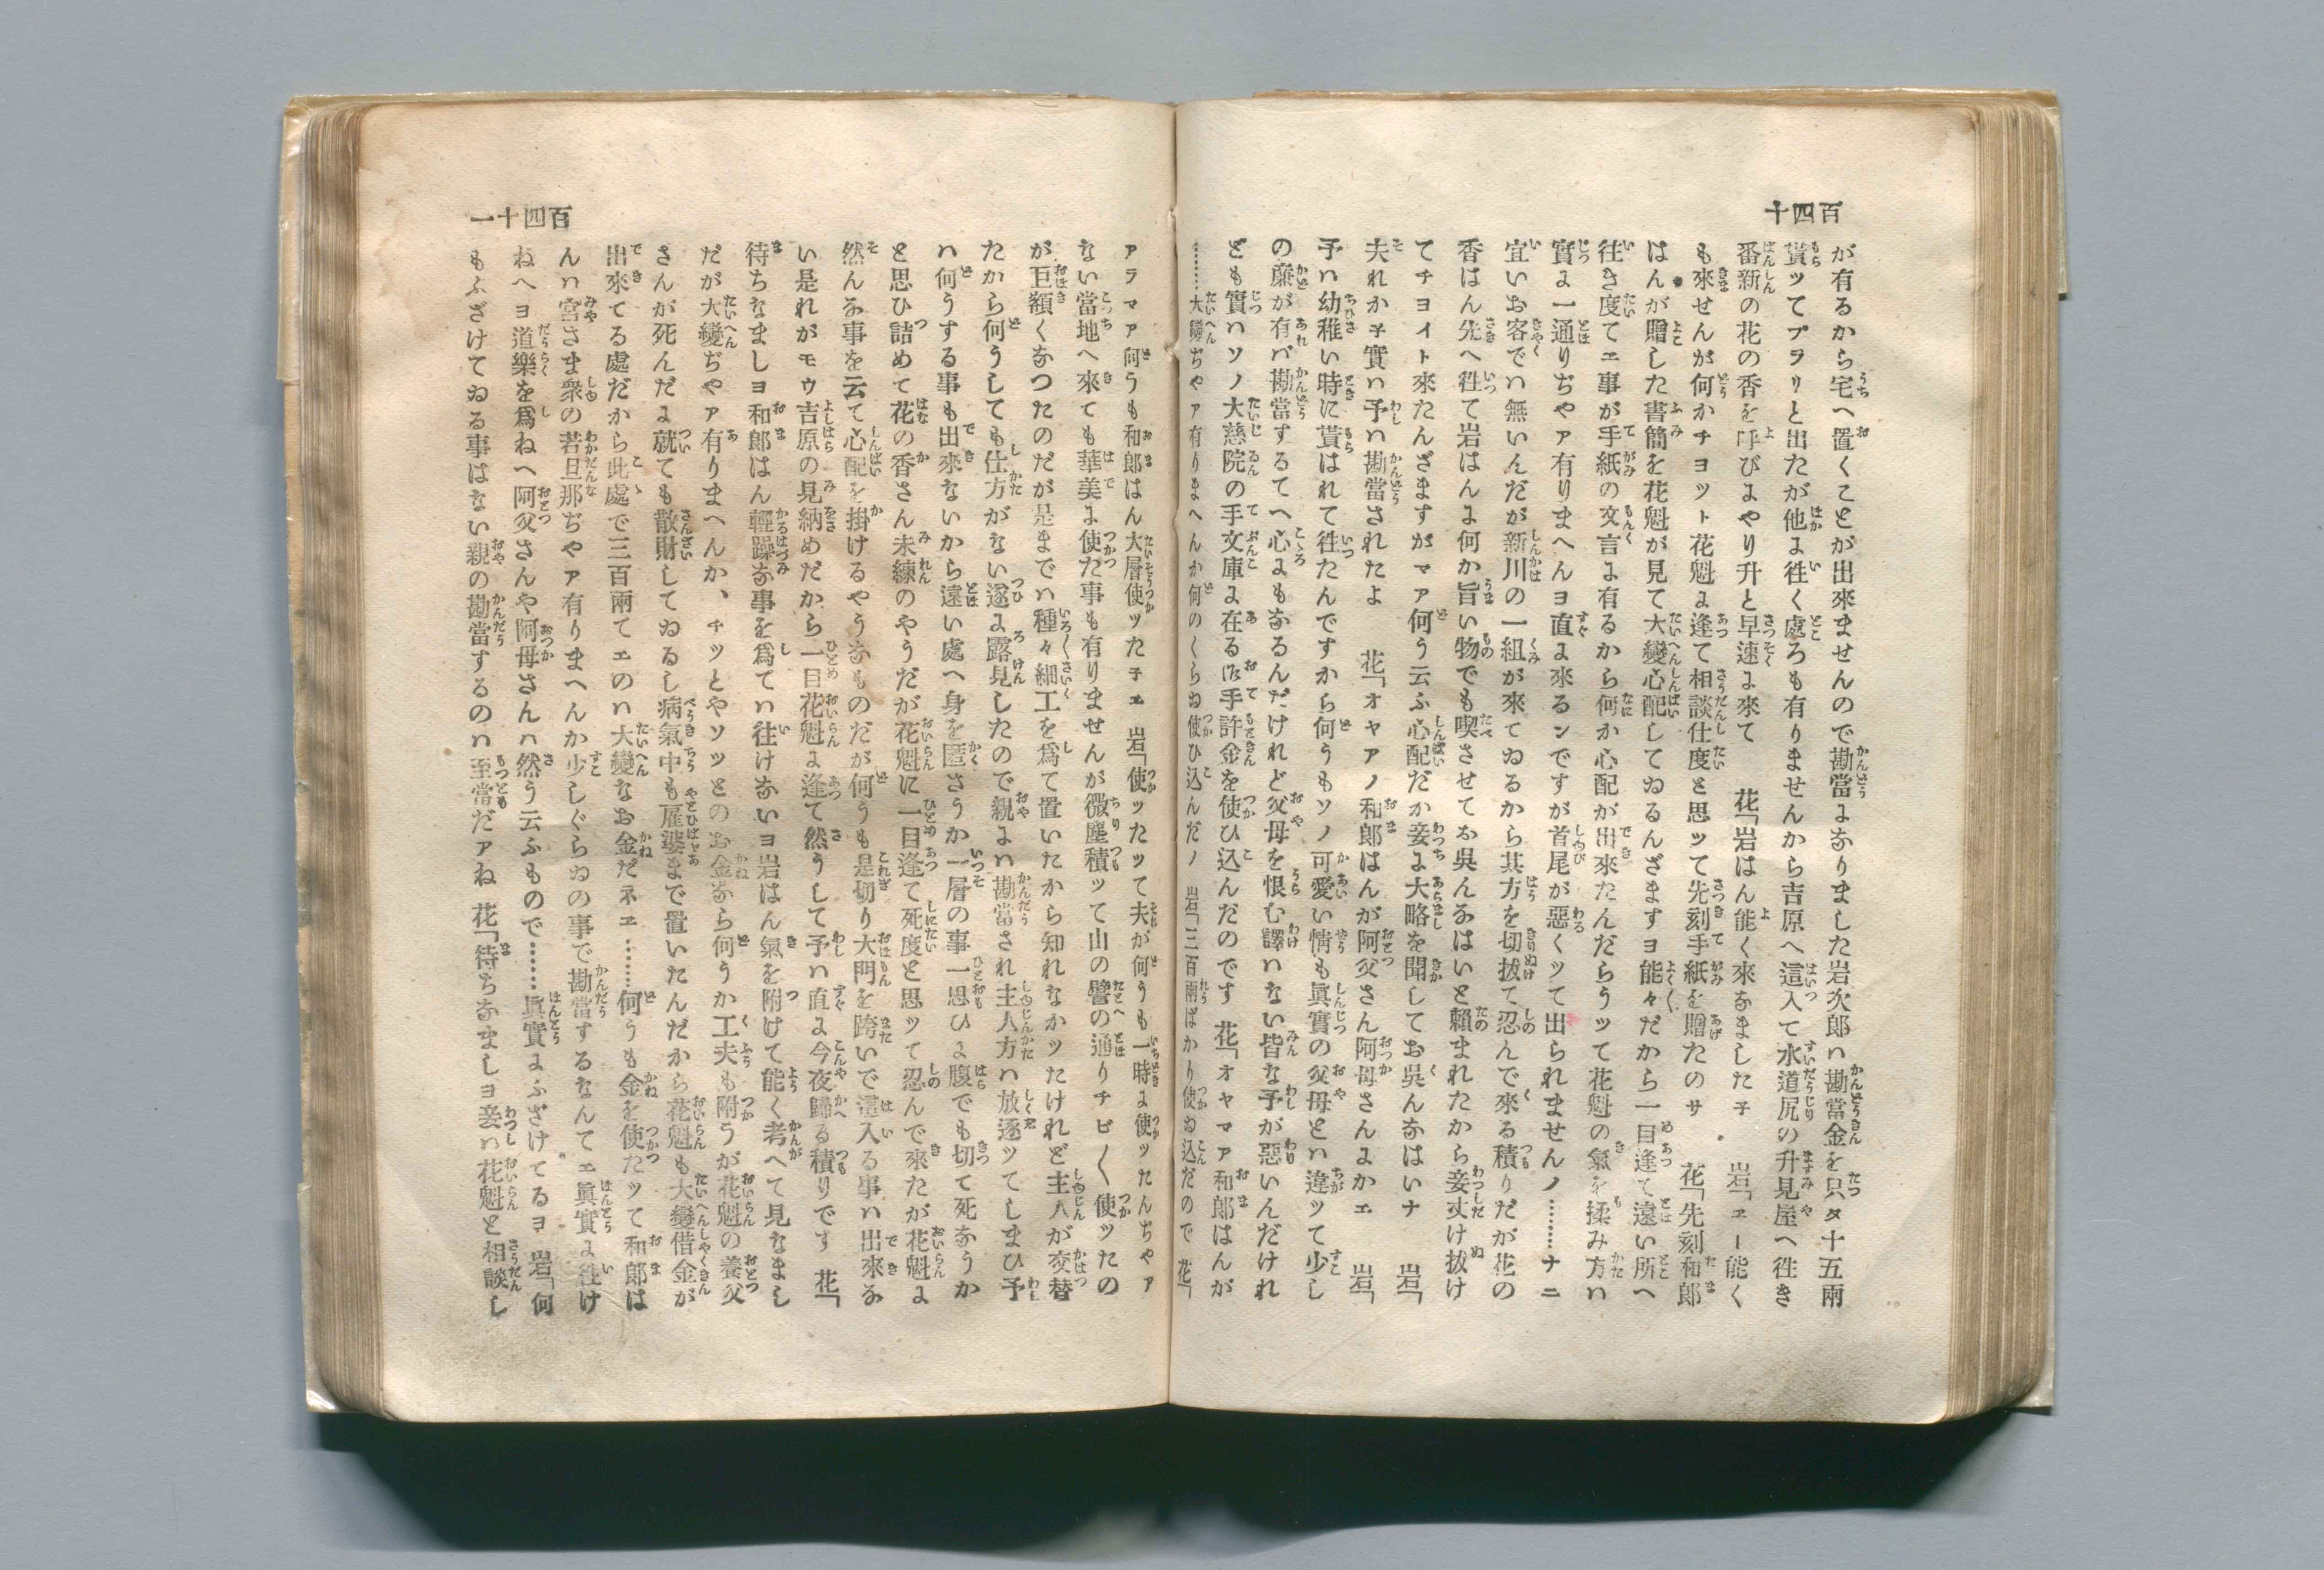 百四十
が有るから宅へ置くことが出來ませんので勘當よありました岩次郎ハ勘當金を只タ十五兩
貰ッてプヲリと出たが他よ徃く處ろも有りませんから吉原へ這入て水道尻の升見屋へ徃き
番新の花の香を呼びよやり升と早速よ來て　花「岩はん能く來なましたチ　岩「エー能く
も來せんが何かチヨット花魁よ逢て相談仕度と思ッて先刻手紙を贈たのサ　花「先刻和郎
はんが贈した書簡を花魁が見て大變心配してゐるんざますヨ能々だから一目逢て遠い所へ
徃き度てエ事が手紙の文言よ有るから何か心配が出來たんだらうッて花魁の氣を揉み方ハ
實よ一通りぢやア有りまへんヨ直よ來るンですが首尾が惡くッて出られませんノ………ナニ
宜いお客でハ無いんだが新川の一組が來てゐるから其方を切拔て忍んで來る積りだが花の
香はん先へ徃て岩はんよ何か旨い物でも喫させてお呉んあはいと賴まれたから妾丈け拔け
てチヨイト來たんざますがマア何う云ふ心配だか妾よ大略を聞してお呉んあはいナ　岩「
夫れかチ實ハ予ハ勘當されたよ　花「オヤアノ和郎はんが阿父さん阿母さんよかエ　岩「
予ハ幼稚い時に貰はれて徃たんですから何うもソノ可愛い情も眞實の父母とハ違ッて少し
の廉が有バ勘當するてへ心よもあるんだけれど父母を恨む譯ハない皆な予が惡いんだけれ
ども實ハソノ大慈院の手文庫よ在る御手許金を使ひ込んだのです　花「オヤマア和郎はんが
……大變ぢやア有りまへんか何のくらゐ使ひ込んだノ　岩「三百兩ばかり使ゐ込だので　花「
百四十一
アラマア何うも和郎はん大層使ッたチエ　岩「使ッたッて夫が何うも一時よ使ッたんぢやア
ない當地へ來ても華美よ使た事も有りませんが微塵積ッて山の譬の通りチビ〱使ッたの
が巨額くあつたのだが是までハ種々細工を爲て置いたから知れなかッたけれど主人が交替
たから何うしても仕方がない遂よ露見したので親よハ勘當され主人方ハ放逐ッてしまひ予
ハ何うする事も出來ないから遠い處へ身を匿さうか一層の事一思ひよ腹でも切て死なうか
と思ひ詰めて花の香さん未練のやうだが花魁に一目逢て死度と思ッて忍んで來たが花魁よ
然んあ事を云て心配を掛けるやうあものだが何うも是切り大門を跨いで這入る事ハ出來あ
い是れがモウ吉原の見納めだから一目花魁よ逢て然うして予ハ直よ今夜歸る積りです　花「
待ちなましヨ和郎はん輕躁あ事を爲てハ徃けあいヨ岩はん氣を附けて能く考へて見なまし
だが大變ぢやア有りまへんか、チッとやソッとのお金あら何うか工夫も附うが花魁の養父
さんが死んだよ就ても散財してゐるし病氣中も雇婆まで置いたんだから花魁も大變借金が
出來てる處だから此處で三百兩てエのハ大變なお金だネエ……何うも金を使たッて和郎は
んハ宮さま衆の若旦那ぢやア有りまへんか少しぐらゐの事で勘當するなんてエ眞實よ徃け
ねへヨ道樂を爲ねへ阿父さんや阿母さんハ然う云ふもので……眞實よふざけてるヨ　岩「何
もふざけてゐる事はない親の勘當するのハ至當だアね　花「待ちあましヨ妾ハ花魁と相談し